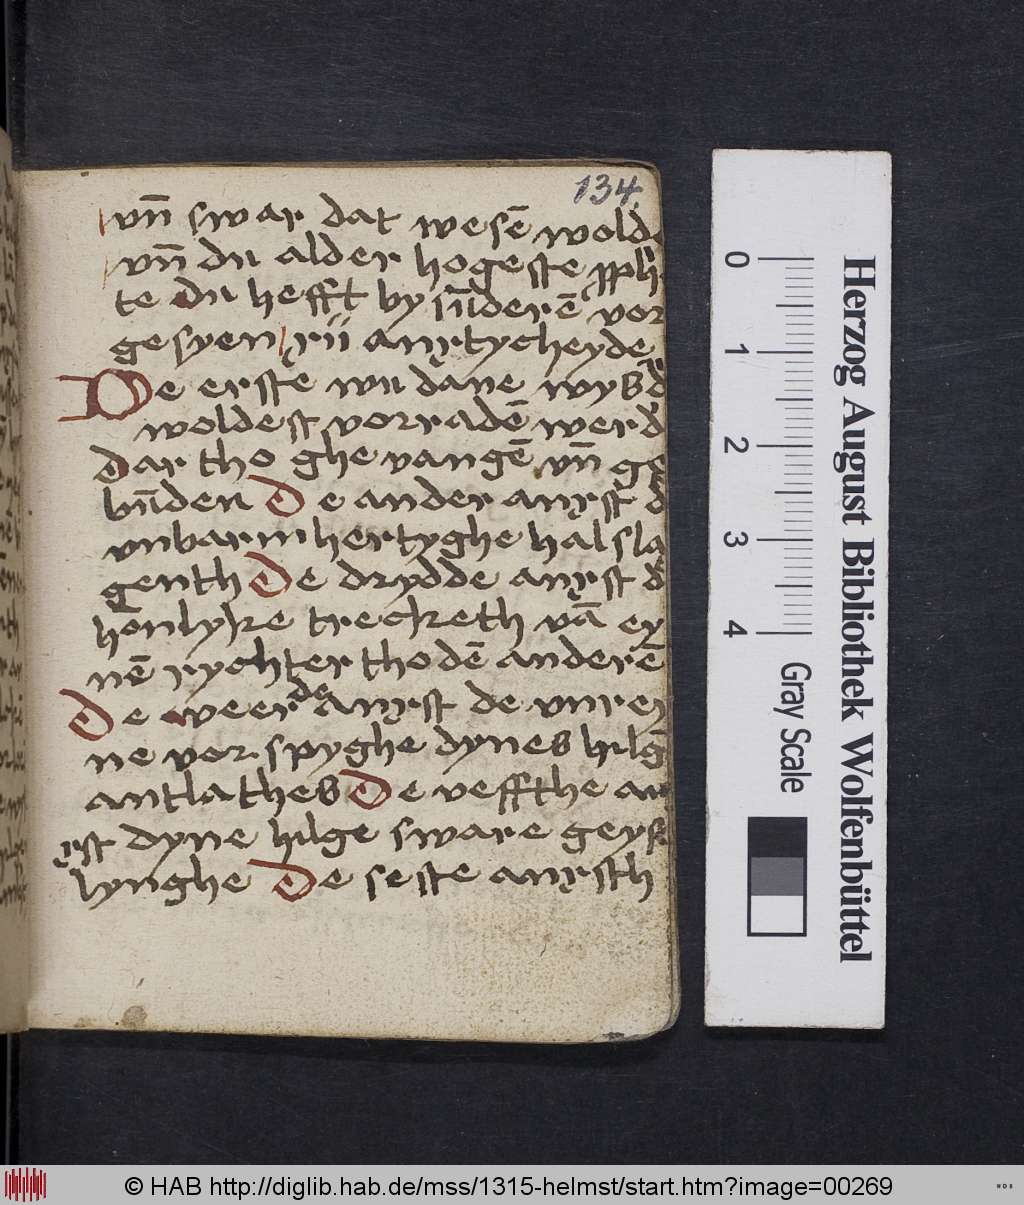 134
vn̄ swar dat wesē wold
vn̄ du alder hogeste pph
te du hefft by sūderē vor
gesyen xii anxtycheyde
De erste wu dane wys d
woldest vorradē werd
dar tho ghe vangē vn̄ ge
būden De ander anxst d
vnbarmhertyghe halsla
genth De drydde anxst d
honlyke trecketh vā ey
nē rychter tho dē anderē
De veerde anxst de vnrey
ne vor spyghe dynes hilg
antlathes De veffthe an
xst dyne hilge sware geys
lynghe De seste anxsth
Herzog August Bibliothek Wolfenbüttel
0 1 2 3 4
Gray Scale
© HAB http://diglib.hab.de/mss/1315-helmst/start.htm?image=00269